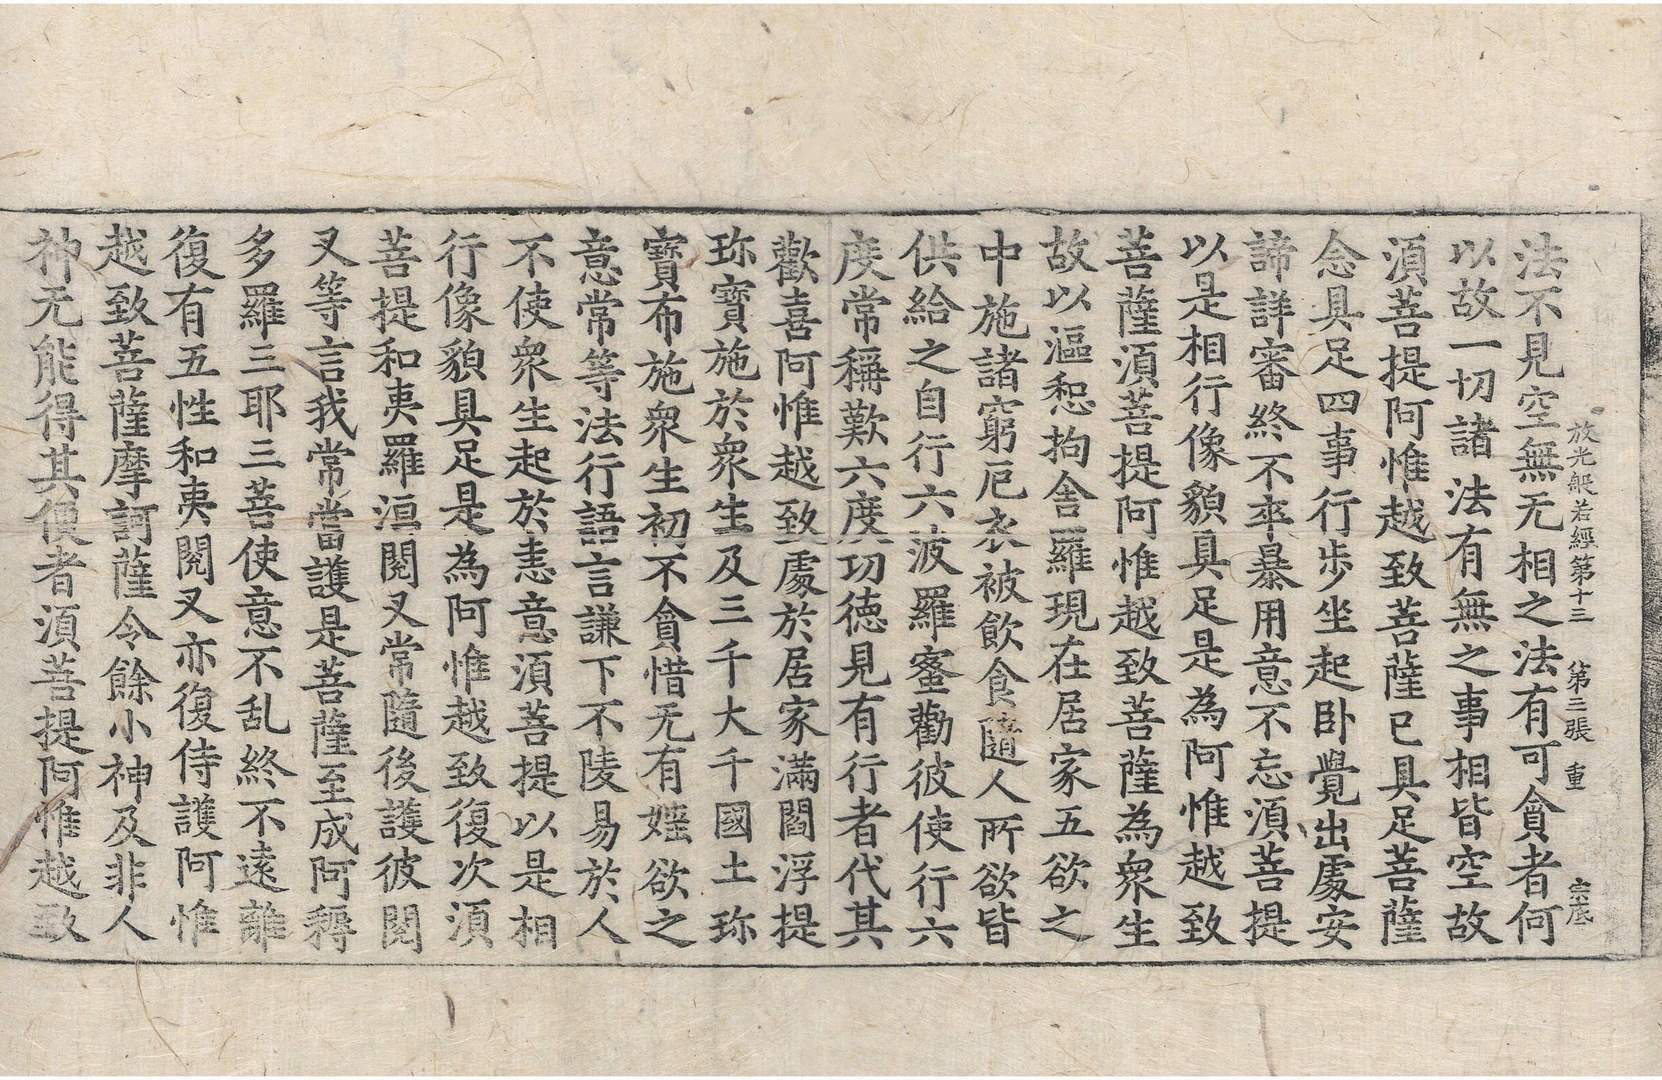 放光般若經第十三 第三張 重 宗底
法不見空無无相之法有可貪者何
以故一切諸法有無之事相皆空故
湏菩提阿惟越致菩薩已具足菩薩
念具足四事行步坐起卧覺出處安
諦詳審終不卒暴用意不忘湏菩提
以是相行像貌具足是為阿惟越致
菩薩湏菩提阿惟越致菩薩為衆生
故以漚惒拘舍羅現在居家五欲之
中施諸窮厄衣被飲食隨人所欲皆
供給之自行六波羅蜜勸彼使行六
度常稱歎六度功德見有行者代其
歡喜阿惟越致處於居家滿閻浮提
珎寶施於衆生及三千大千國土珎
寶布施衆生初不貪惜无有婬欲之
意常等法行語言謙下不陵易於人
不使衆生起於恚意湏菩提以是相
行像貌具足是為阿惟越致復次湏
菩提和夷羅洹閱叉常隨後護彼閱
叉等言我常當護是菩薩至成阿耨
多羅三耶三菩使意不乱終不遠離
復有五性和夷閱叉亦復侍護阿惟
越致菩薩摩訶薩令餘小神及非人
神无能得其便者湏菩提阿惟越致